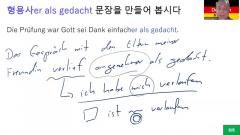 형용사er als gedacht 문장을 만들어 봅시다
Die Prüfung war Gott sei Dank einfacher als gedacht.
Das Gespräch mit den Eltern meiner
Freundin verlief angenehmer als gedacht.
ich habe mich verlaufen
ist verlaufen